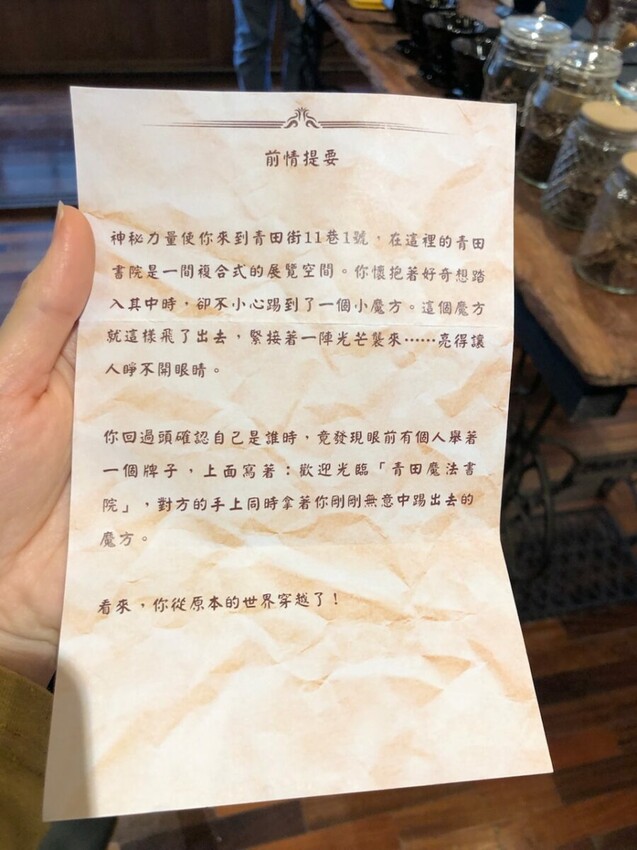 前情提要
神秘力量使你來到青田街11巷1號，在這裡的青田
書院是一間複合式的展覽空間。你懷抱著好奇想踏
入其中時，卻不小心踢到了一個小魔方。這個魔方
就這樣飛了出去，緊接著一陣光芒襲來……亮得讓
人睜不開眼睛。
你回過頭確認自己是誰時，竟發現眼前有個人舉著
一個牌子，上面寫著：歡迎光臨「青田魔法書
院」，對方的手上同時拿著你剛剛無意中踢出去的
魔方。
看來，你從原本的世界穿越了！